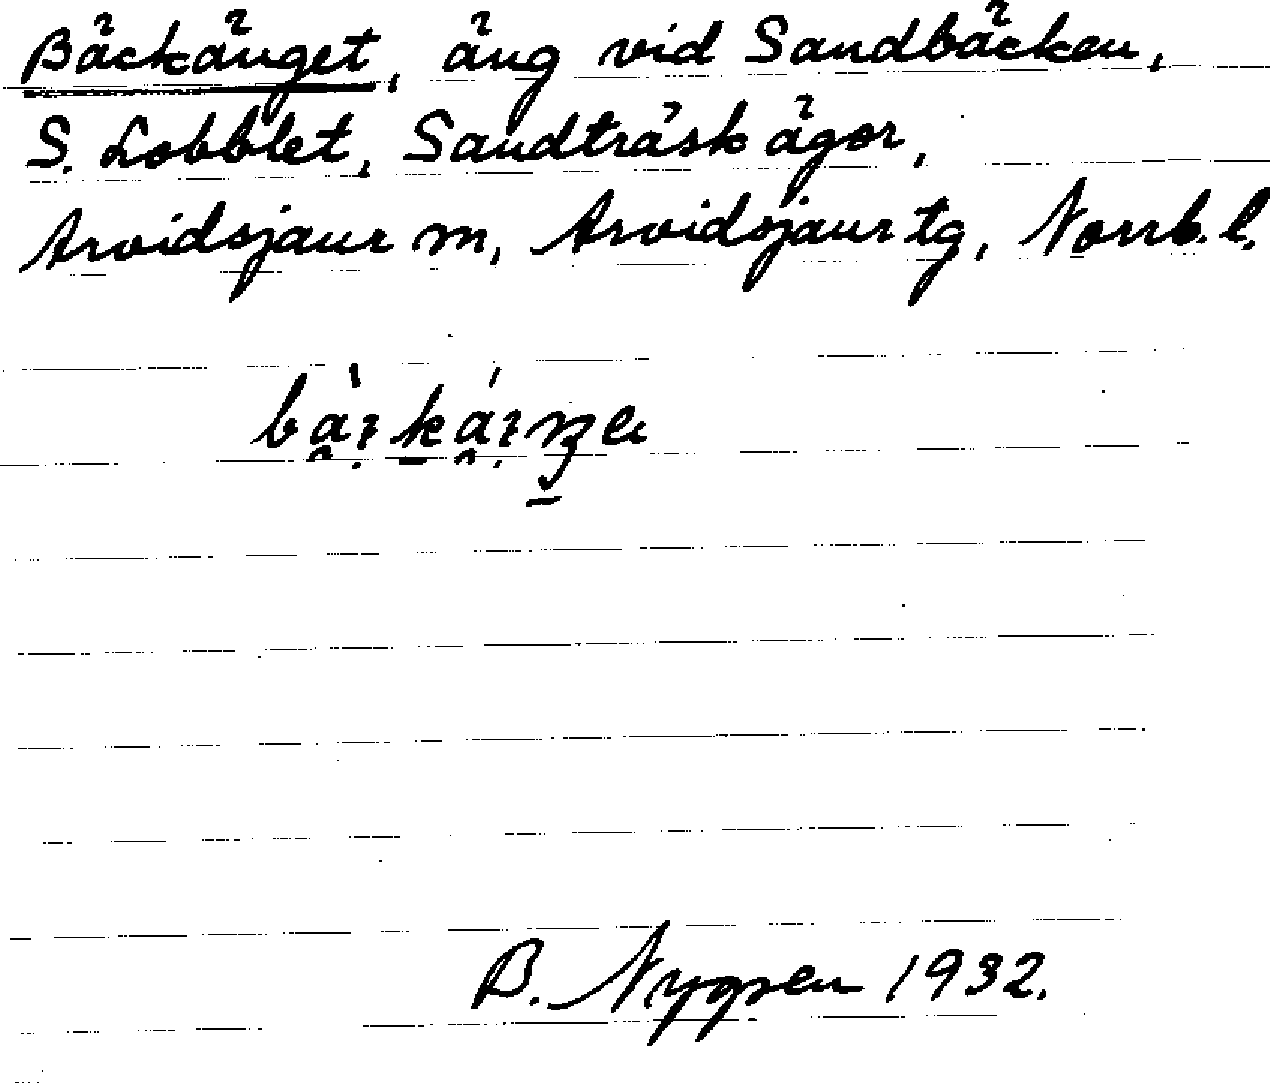 Bäckänget, äng vid Sandbäcken,
S. Lobblet, Sandträsk ägor,
Arvidsjaur sn, Arvidsjaur tg, Norrb. l.
B. Nygren 1932.